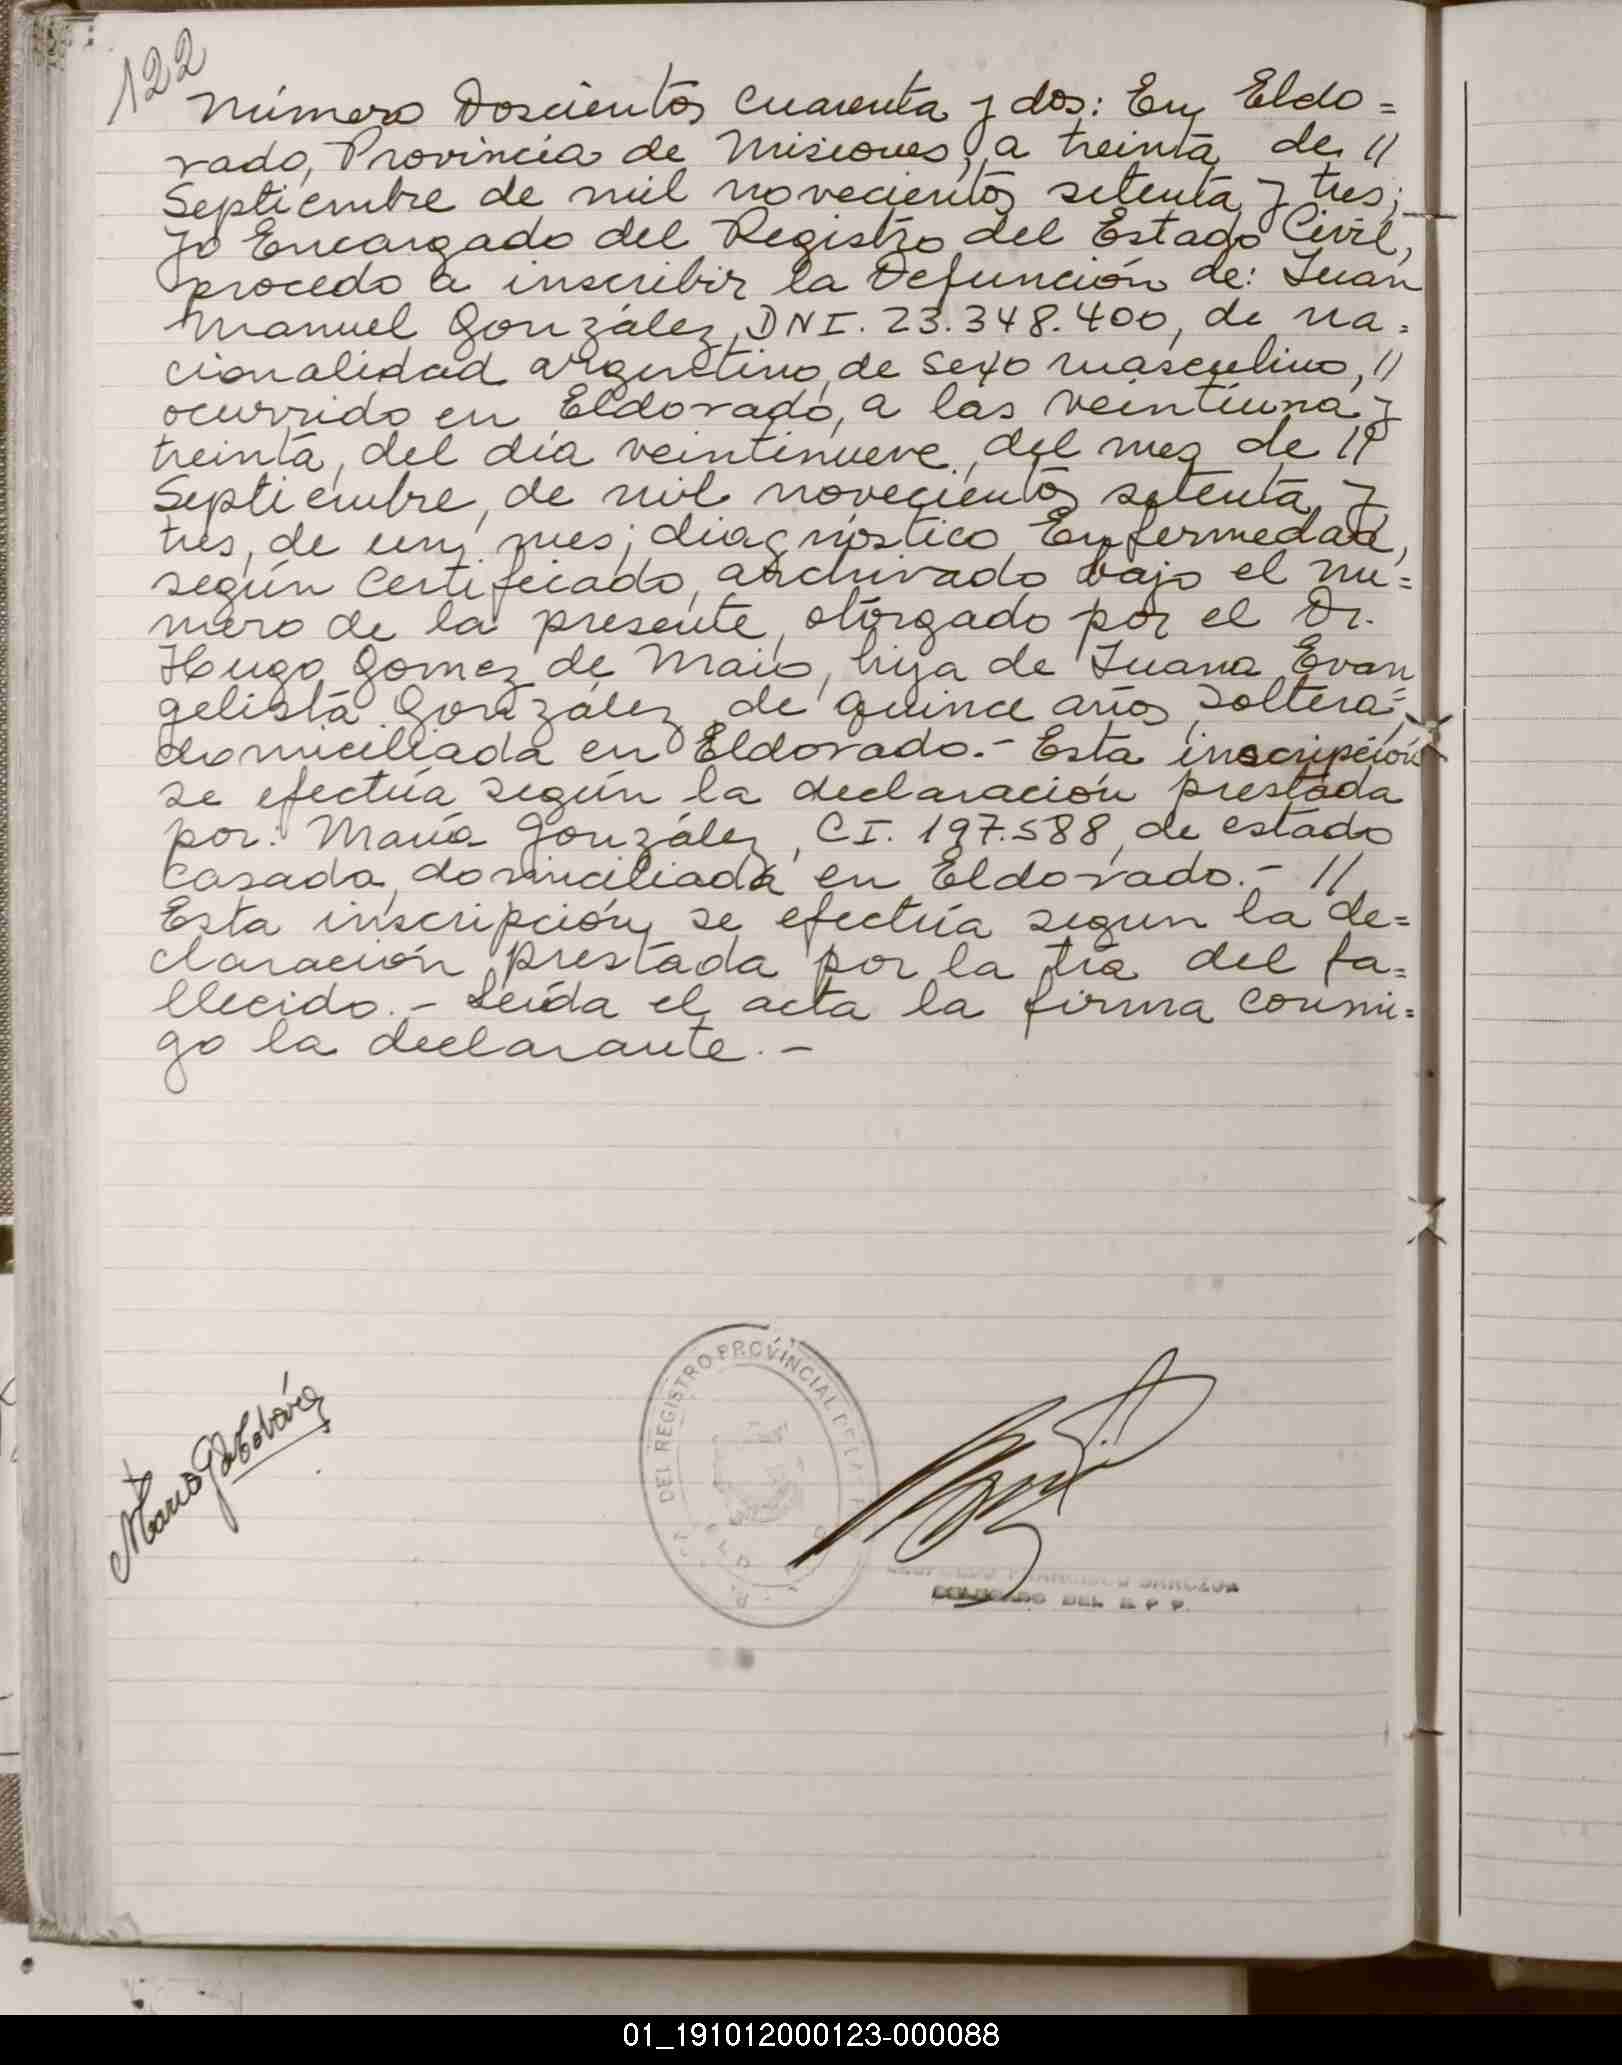 122
Número Doscientos cuarenta y dos: En Eldo=
rado, Provincia de Misiones, a treinta de //
Septiembre de mil novecientos setenta y tres;
yo Encargado del Registro del Estado Civil,
procedo a inscribir la Defunción de: Juan
Manuel González, DNI. 23.348.400, de na=
cionalidad argentino, de sexo masculino, //
ocurrido en Eldorado, a las veintiuna y
treinta, del día veintinueve, del mes de //
Septiembre, de mil novecientos setenta y
tres, de un mes; diagnóstico Enfermedad,
según Certificado, archivado bajo el nú=
mero de la presente, otorgado por el Dr.
Hugo Gomez de Maio, hijo de Juana Evan
gelista González, de quince años, soltera=
domiciliada en Eldorado.- Esta inscripción
se efectúa según la declaración prestada
por: María González, CI. 197.588, de estado
casada, domiciliada en Eldorado.- //
Esta inscripción se efectúa segun la de=
claración prestada por la tía del fa=
llecido.- Leída el acta la firma conmi=
go la declarante.-
María G de
DEL REGISTRO PROVINCIAL DE LA
DEL R P P.
01_191012000123-000088